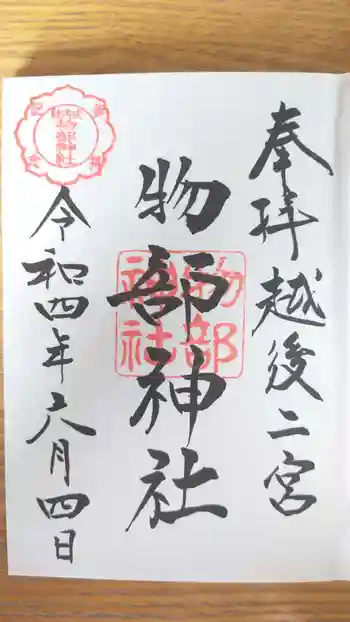 奉拝 越後二宮
物部神社
令和四年六月四日
物部神社